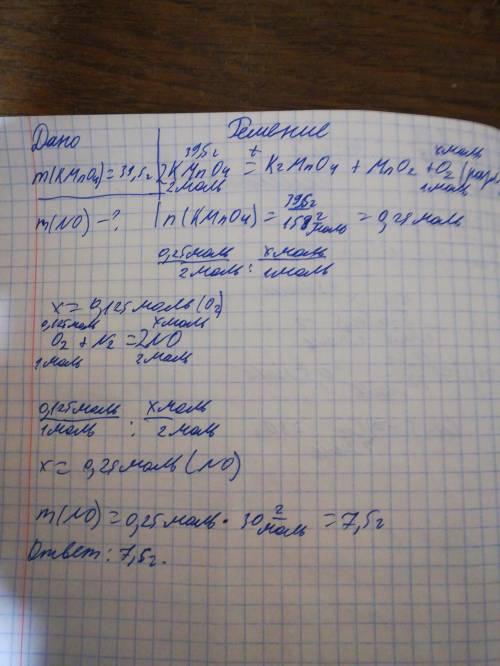 Дано Решение
39,5г t x моль
m(KMnO4)=39,5г 2KMnO4 = K2MnO4 + MnO2 + O2
2моль 1моль
m(NO) – ? n(KMnO4) = 39,5г / 158 г/моль = 0,25 моль
0,25моль / 2 моль : x моль / 1моль
x = 0,125 моль (O2)
0,125моль x моль
O2 + N2 = 2NO
1моль 2моль
0,125моль / 1моль : x моль / 2моль
x = 0,25 моль (NO)
m(NO) = 0,25 моль · 30 г/моль = 7,5г
Ответ: 7,5г.